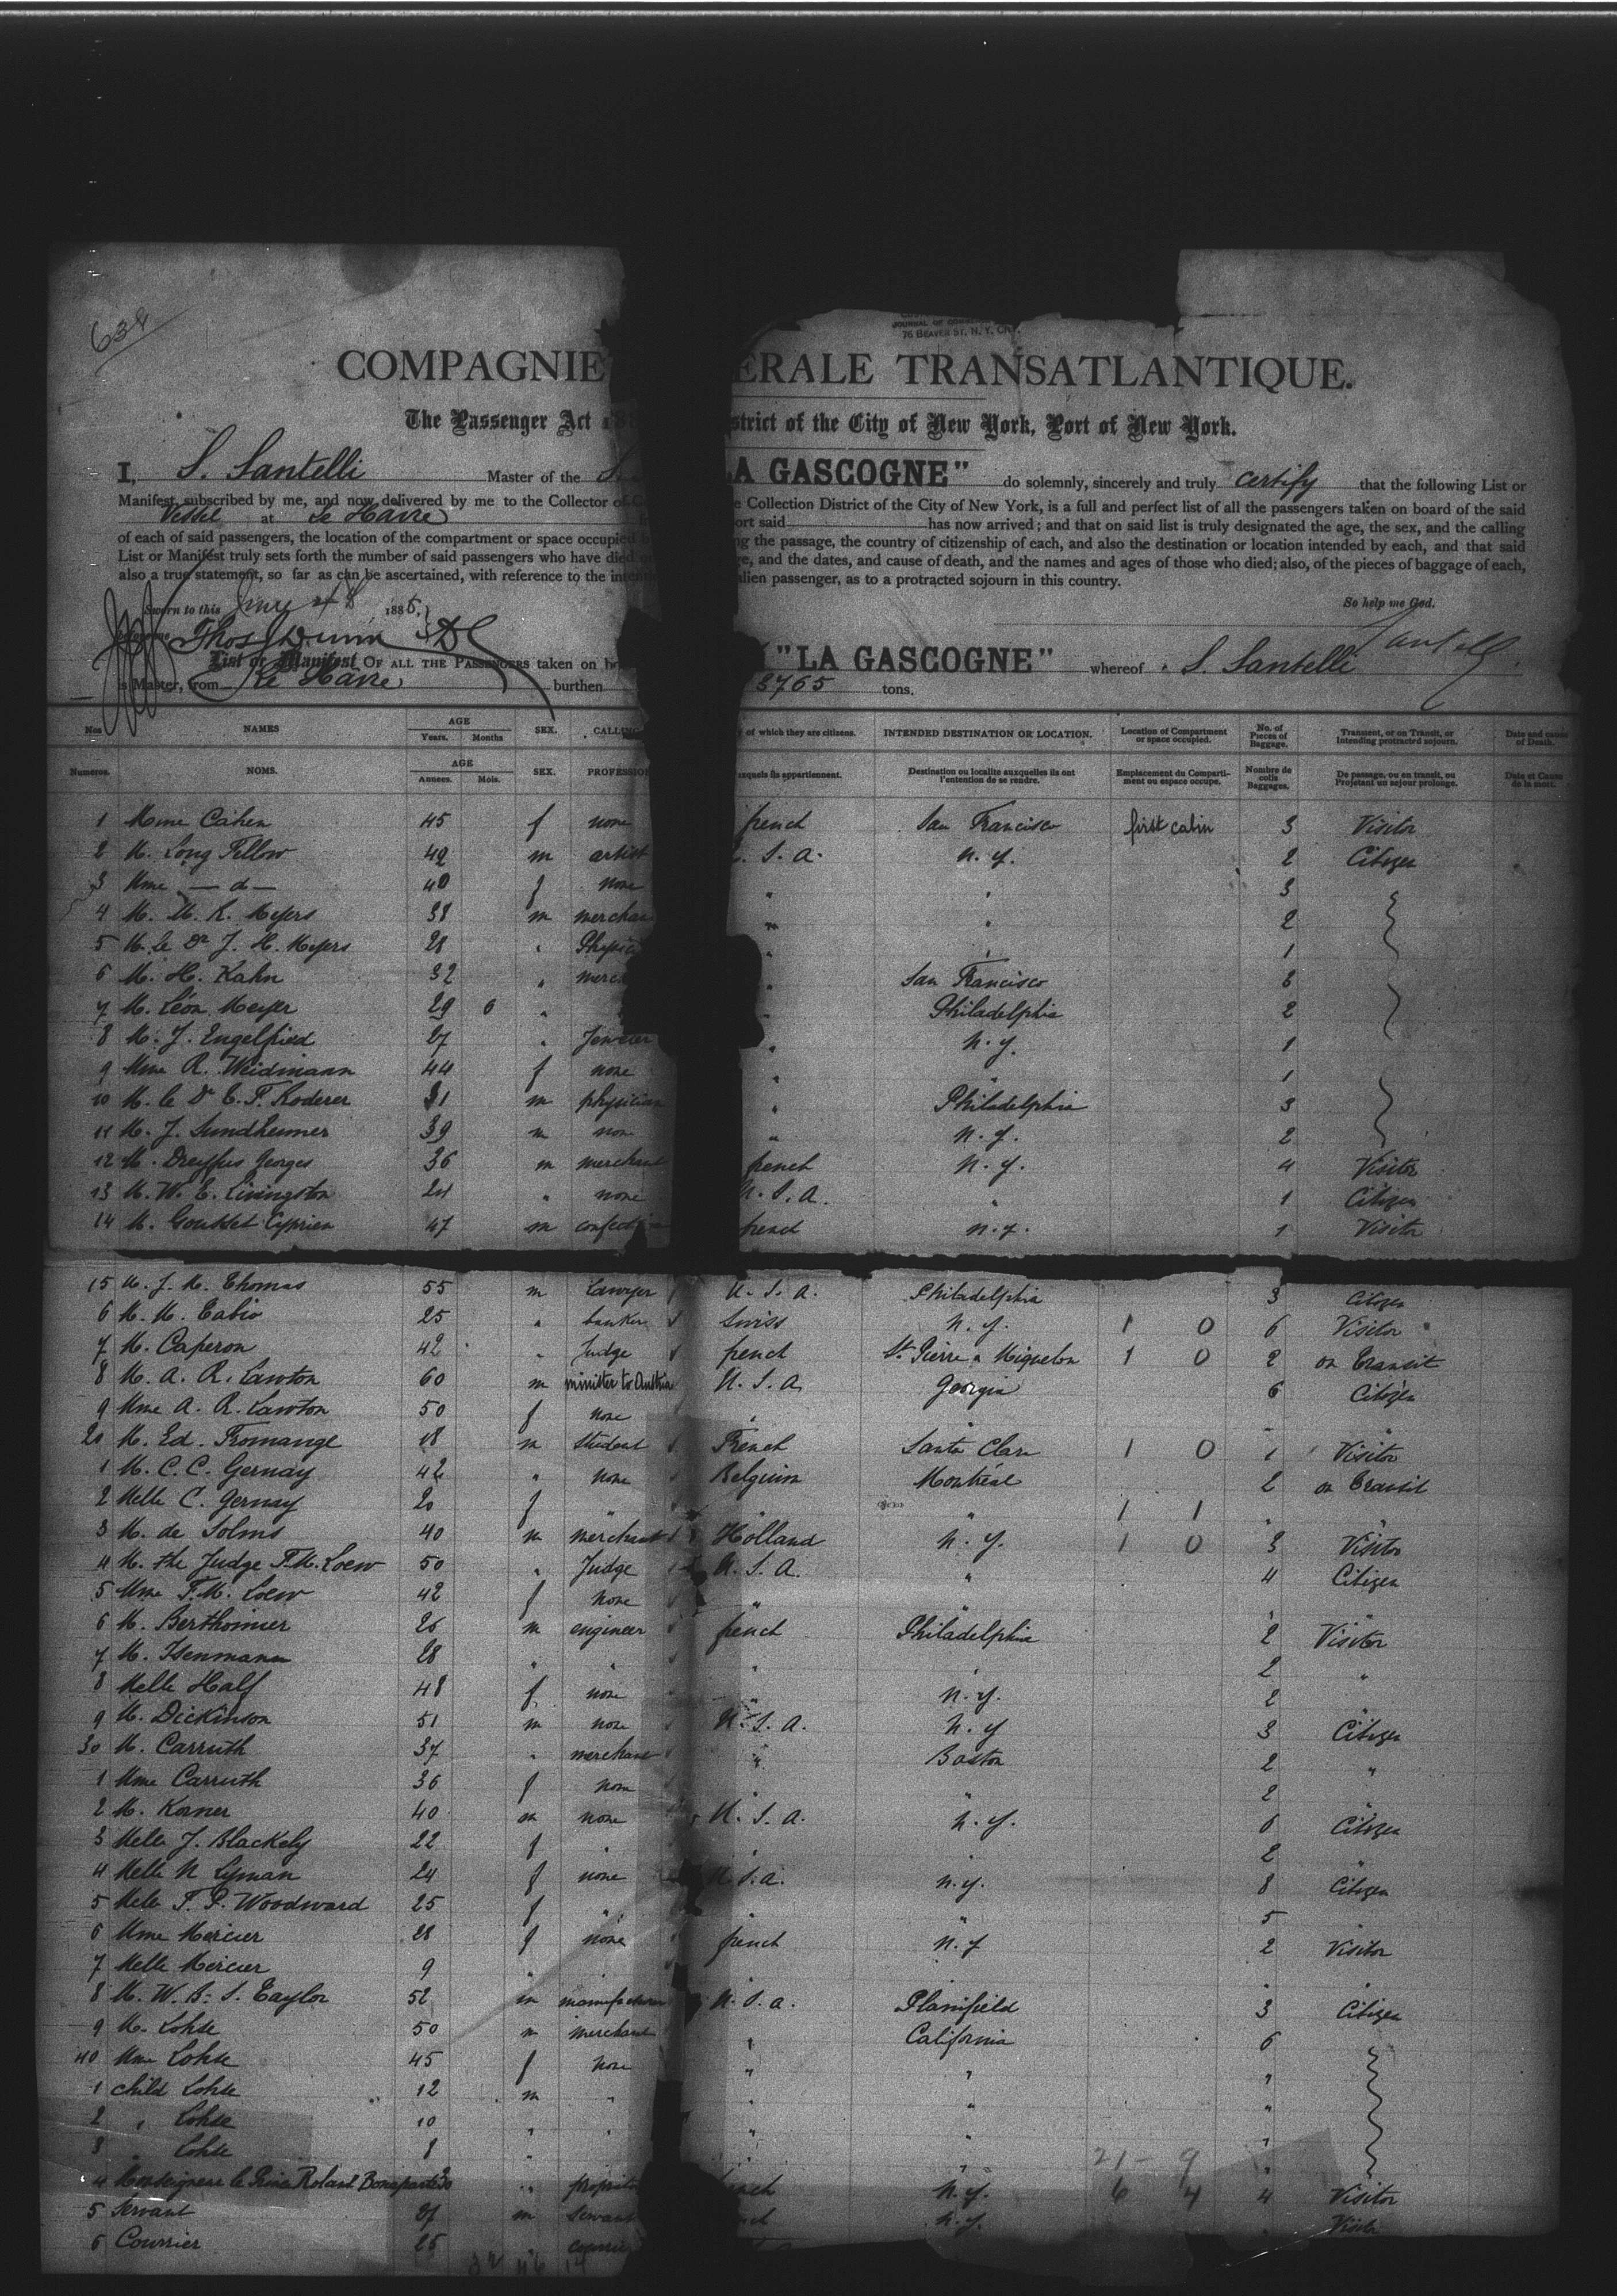 634
JOURNAL OF
76 BEAVER ST. N. Y. CITY.
COMPAGNIE ERALE TRANSATLANTIQUE.
The Passenger Act strict of the City of New York, Port of New York.
I, S. Santelli Master of the S. LA GASCOGNE" do solemnly, sincerely and truly certify that the following List or
Manifest, subscribed by me, and now delivered by me to the Collector of Collection District of the City of New York, is a full and perfect list of all the passengers taken on board of the said
Vessel at Le Havre ort said has now arrived; and that on said list is truly designated the age, the sex, and the calling
of each of said passengers, the location of the compartment or space occupied ng the passage, the country of citizenship of each, and also the destination or location intended by each, and that said
List or Manifest truly sets forth the number of said passengers who have died and the dates, and cause of death, and the names and ages of those who died; also, of the pieces of baggage of each,
also a true statement, so far as can be ascertained, with reference to the alien passenger, as to a protracted sojourn in this country.
Sworn to this 188 So help me God.
Thos Dunn
List or Manifest OF ALL THE PASSENGERS taken on "LA GASCOGNE" whereof S. Santelli
is Master, from Le Havre burthen 3765 tons.
Nos NAMES AGE Years. Months SEX. CALLING of which they are citizens. INTENDED DESTINATION OR LOCATION. Location of Compartment or space occupied. No. of Pieces of Baggage. Transient, or on Transit, or Intending protracted sojourn. Date and cause of Death.
Numeros. NOMS. AGE Annees. Mois. SEX. PROFESSION auxquels ils appartiennent. Destination ou localite auxquelles ils ont l'entention de se rendre. Emplacement du Compartiment ou espace occupe. Nombre de colis Baggages. De passage, ou en transit, ou Projetant un sejour prolonge. Date et Cause de la mort.
1 Mme Cahen 45 f none french San Francisco first cabin 3 Visitor
2 M. Long Fellow 42 m artist S. A. N. Y. 2 Citizen
3 Mme — d — 40 f none " " 3
4 M. M. R. Meyers 38 m merchan " " 2
5 M. le Dr J. H. Meyers 28 " Physic " " 1
6 M. H. Kahn 32 " merc " San Francisco 3
7 M. Léon Meyer 29 6 " " Philadelphia 2
8 M. J. Engelfried 27 " Jeweler " N. Y. 1
9 Mme R. Weidmann 44 f none " " 1
10 M. le Dr E. F. Roderer 31 m physician " Philadelphia 3
11 M. J. Sundheimer 39 m non " N. Y. 2
12 M. Dreyfus Georges 36 m merchant french N. Y. 4 Visitor
13 M. W. E. Livingston 24 " none U. S. A. " 1 Citizen
14 M. Gousset Cyprien 47 m confect french N. Y. 1 Visitor
15 M. J. M. Thomas 55 m Lawyer U. S. A. Philadelphia 3 Citizen
6 M. M. Cabio 25 " banker Swiss N. Y. 1 0 6 Visitor
7 M. Caperon 42 " Judge french St Pierre & Miquelon 1 0 2 on Transit
8 M. A. R. Lawton 60 m minister to Austria U. S. A Georgia 6 Citizen
9 Mme A. R. Lawton 50 f none " " "
20 M. Ed. Fromange 18 m Student French Santa Clara 1 0 1 Visitor
1 M. C. C. Gernay 42 " none Belgium Montréal 2 on Transit
2 Melle C. Gernay 20 f " " " 1 1 " "
3 M. de Solms 40 m merchant Holland N. Y. 1 0 3 Visitor
4 M. the Judge F. M. Loew 50 " Judge U. S. A. " 4 Citizen
5 Mme F. M. Loew 42 f none " " " "
6 M. Berthomier 26 m engineer french Philadelphia 2 Visitor
7 M. Isenmann 28 " " " " 2 "
8 Melle Half 48 f none " N. Y. 2
9 M. Dickinson 51 m none U. S. A. N. Y 3 Citizen
30 M. Carruth 37 " merchant " Boston 2 "
1 Mme Carruth 36 f none " " 2 "
2 M. Korner 40 m none U. S. A. N. Y. 6 Citizen
3 Melle J. Blackely 22 f " " " 2 "
4 Melle N Lyman 24 f none U. S. a. N. Y. 8 Citizen
5 Melle F. P. Woodward 25 f " " " 5 "
6 Mme Mercier 28 f none french N. Y 2 Visitor
7 Melle Mercier 9 " " " "
8 M. W. B. S. Taylor 52 m manufacturer U. S. a. Plainfield 3 Citizen
9 M. Lohse 50 m merchant " California 6
40 Mme Lohse 45 f none " " "
1 child Lohse 12 m " " " "
2 " Lohse 10 " " " " "
3 " Lohse 8 " " " 21 - 9 "
4 Monseigneur le Prince Roland Bonaparte " propriet ench N. Y. 6 4 4 Visitor
5 Servant 27 m Servant N. Y. Visitor
6 Courrier 25 " courrie